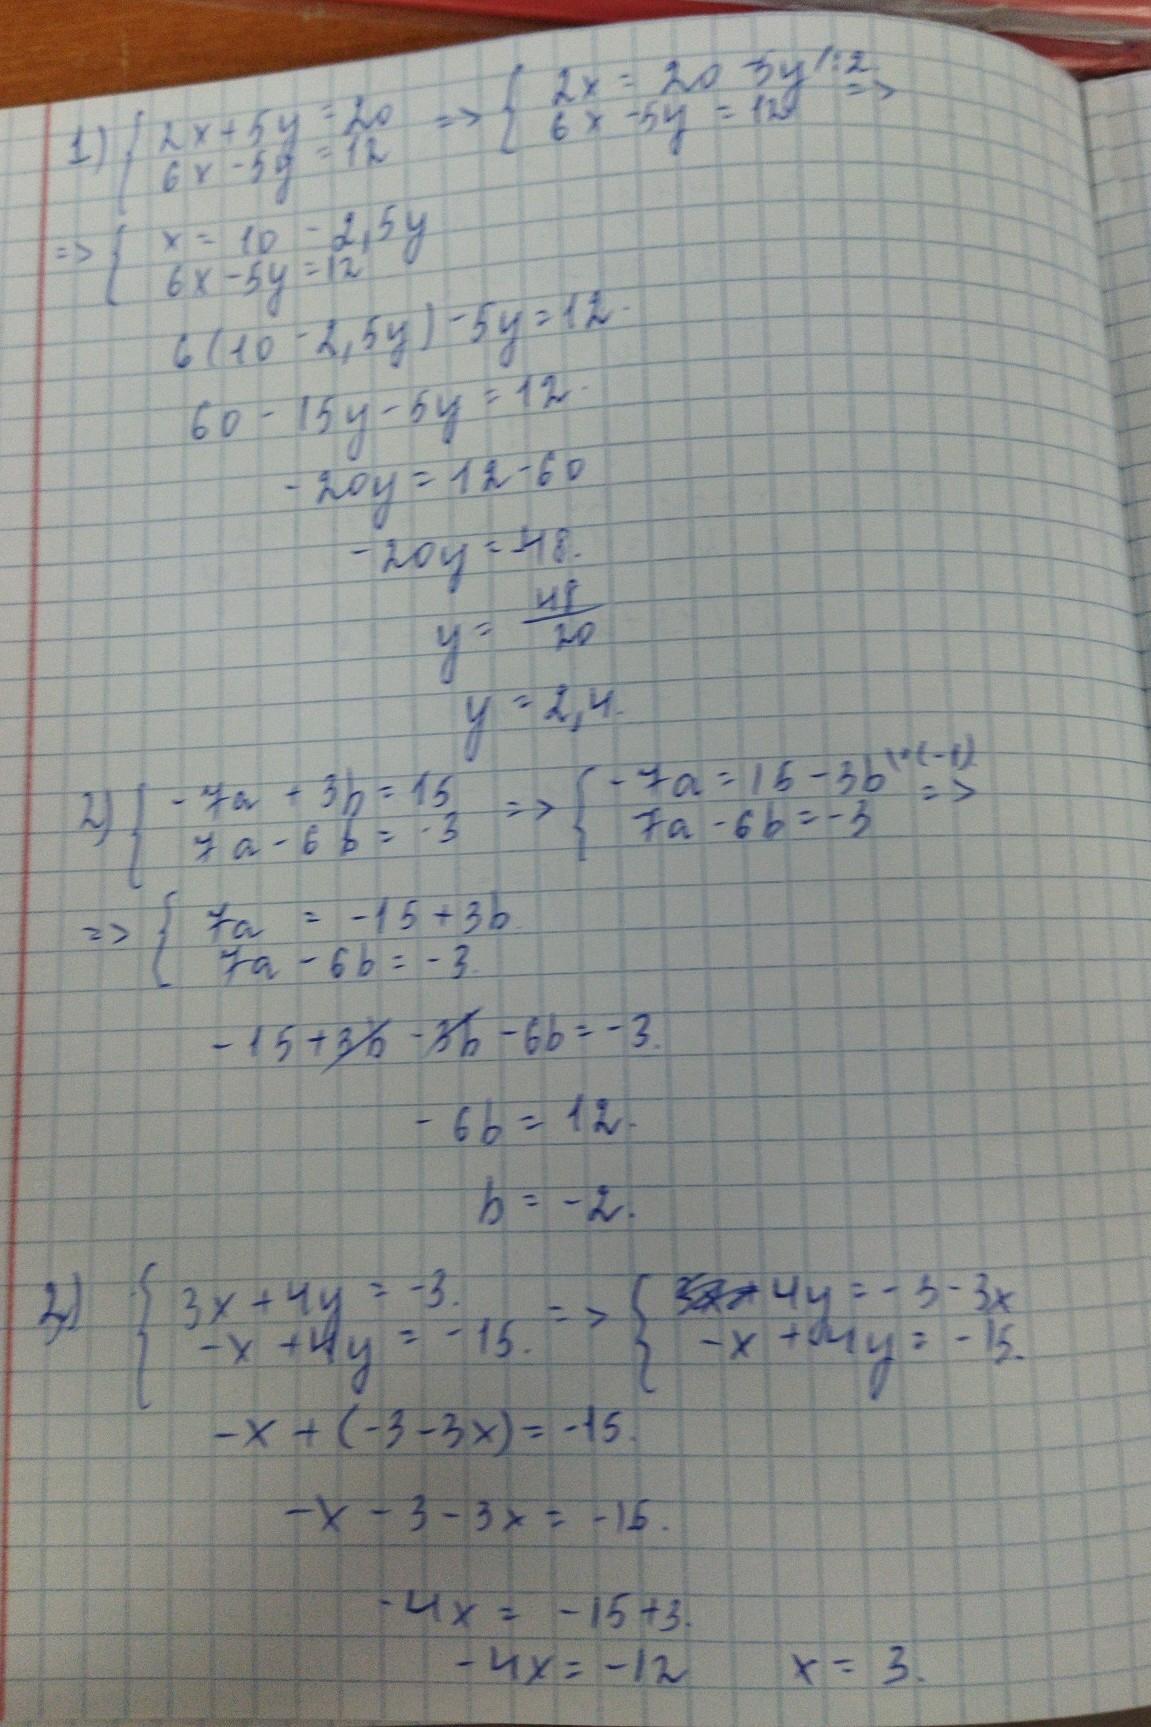 1) { 2x+5y=20 => { 2x = 20-5y /:2
6x-5y=12 6x-5y=12 =>
=> { x = 10 - 2,5y
6x-5y=12
6(10-2,5y)-5y=12.
60 - 15y - 5y = 12.
-20y = 12-60
-20y = -48.
y = 48/20
y = 2,4.
2) { -7a + 3b = 15 => { -7a = 15 - 3b |·(-1)
7a - 6b = -3 7a - 6b = -3 =>
=> { 7a = -15 + 3b
7a - 6b = -3.
-15 + 3b - 3b - 6b = -3.
-6b = 12.
b = -2.
2) { 3x + 4y = -3. => { 4y = -3 - 3x
-x + 4y = -15. -x + 4y = -15.
-x + (-3 - 3x) = -15.
-x - 3 - 3x = -15.
-4x = -15 + 3.
-4x = -12 x = 3.